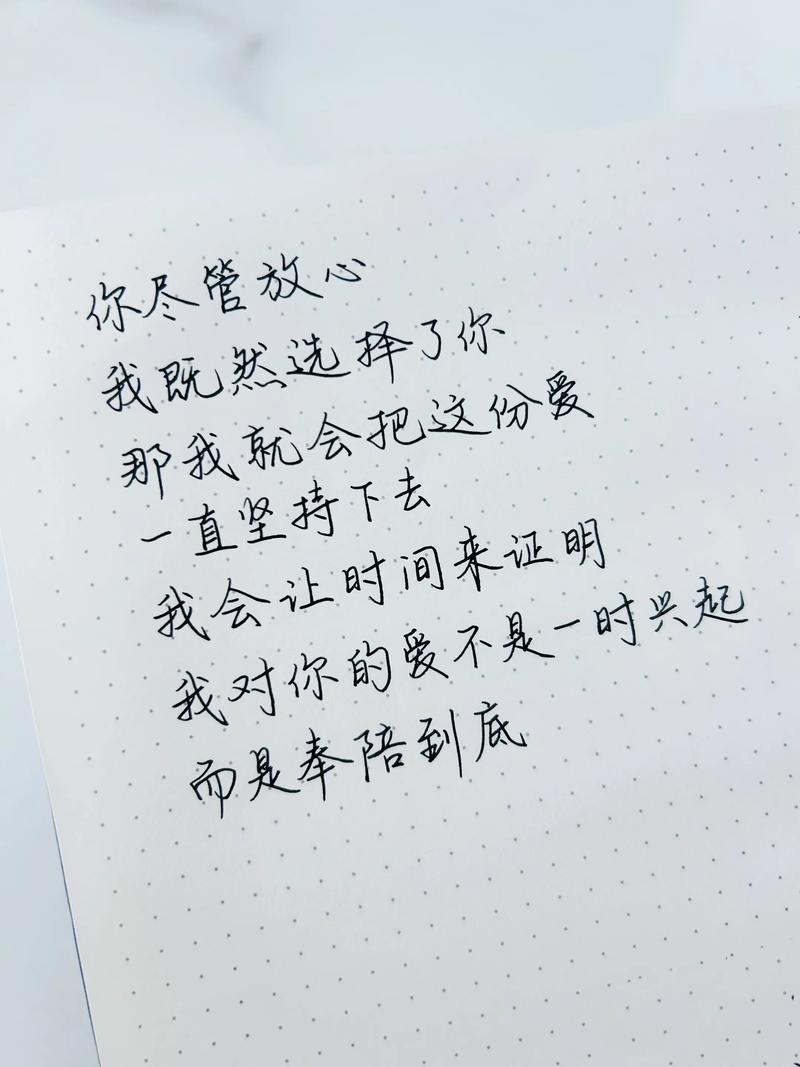 你尽管放心
我既然选择了你
那我就会把这份爱
一直坚持下去
我会让时间来证明
我对你的爱不是一时兴起
而是奉陪到底